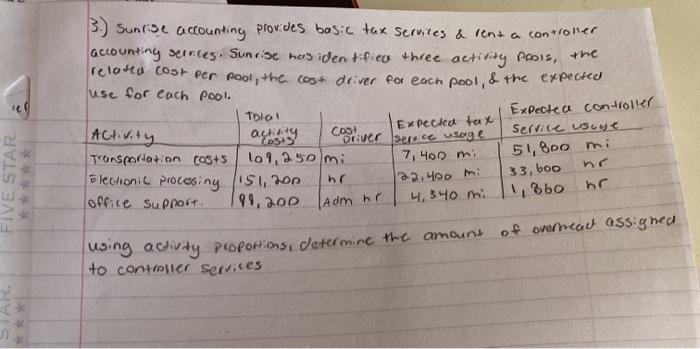 3.) Sunrise accounting provides basic tax services & rent a controller
accounting services. Sunrise has identified three activity pools, the
related cost per pool, the cost driver for each pool, & the expected
use for each pool.
Activity | Total activity costs | Cost Driver | Expected tax service usage | Expected controller service usage
Transportation costs | 109,250 | mi | 7,400 mi | 51,800 mi
Electronic processing | 151,200 | hr | 22,400 mi | 33,600 hr
office support. | 99,200 | Adm hr | 4,340 mi | 1,860 hr
using activity proportions, determine the amount of overhead assigned
to controller services
FIVE STAR
STAR